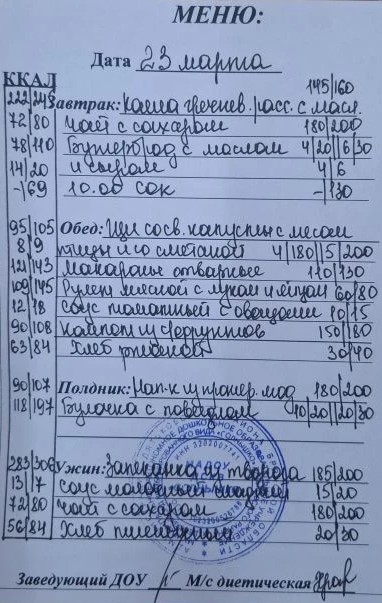 МЕНЮ:
Дата 23 марта
ККАЛ
145/160
222/245 Завтрак: Каша гречнев. расс. с масл.
72/80 Чай с сахаром 180/200
78/110 Бутерброд с маслом 4/20//6/30
14/20 и сыром 4/6
-/69 10.00 Сок -/130
95/105 Обед: Щи со св. капусты с мясом
8/9 птицы и со сметаной 4/180//5/200
121/143 Макароны отварные 110/130
109/145 Рулет мясной с луком и яйцом 60/80
12/18 Соус томатный с овощами 10/15
90/108 Компот из фруктов 150/180
63/84 Хлеб ржаной 30/40
90/107 Полдник: Нап-к из 180/200
118/197 Булочка с повидлом 20/30
283/306 Ужин: Запеканка из творога 185/200
13/17 Соус молочный сладкий 15/20
72/80 Чай с сахаром 180/200
56/84 Хлеб пшеничный 20/30
Заведующий ДОУ М/с диетическая